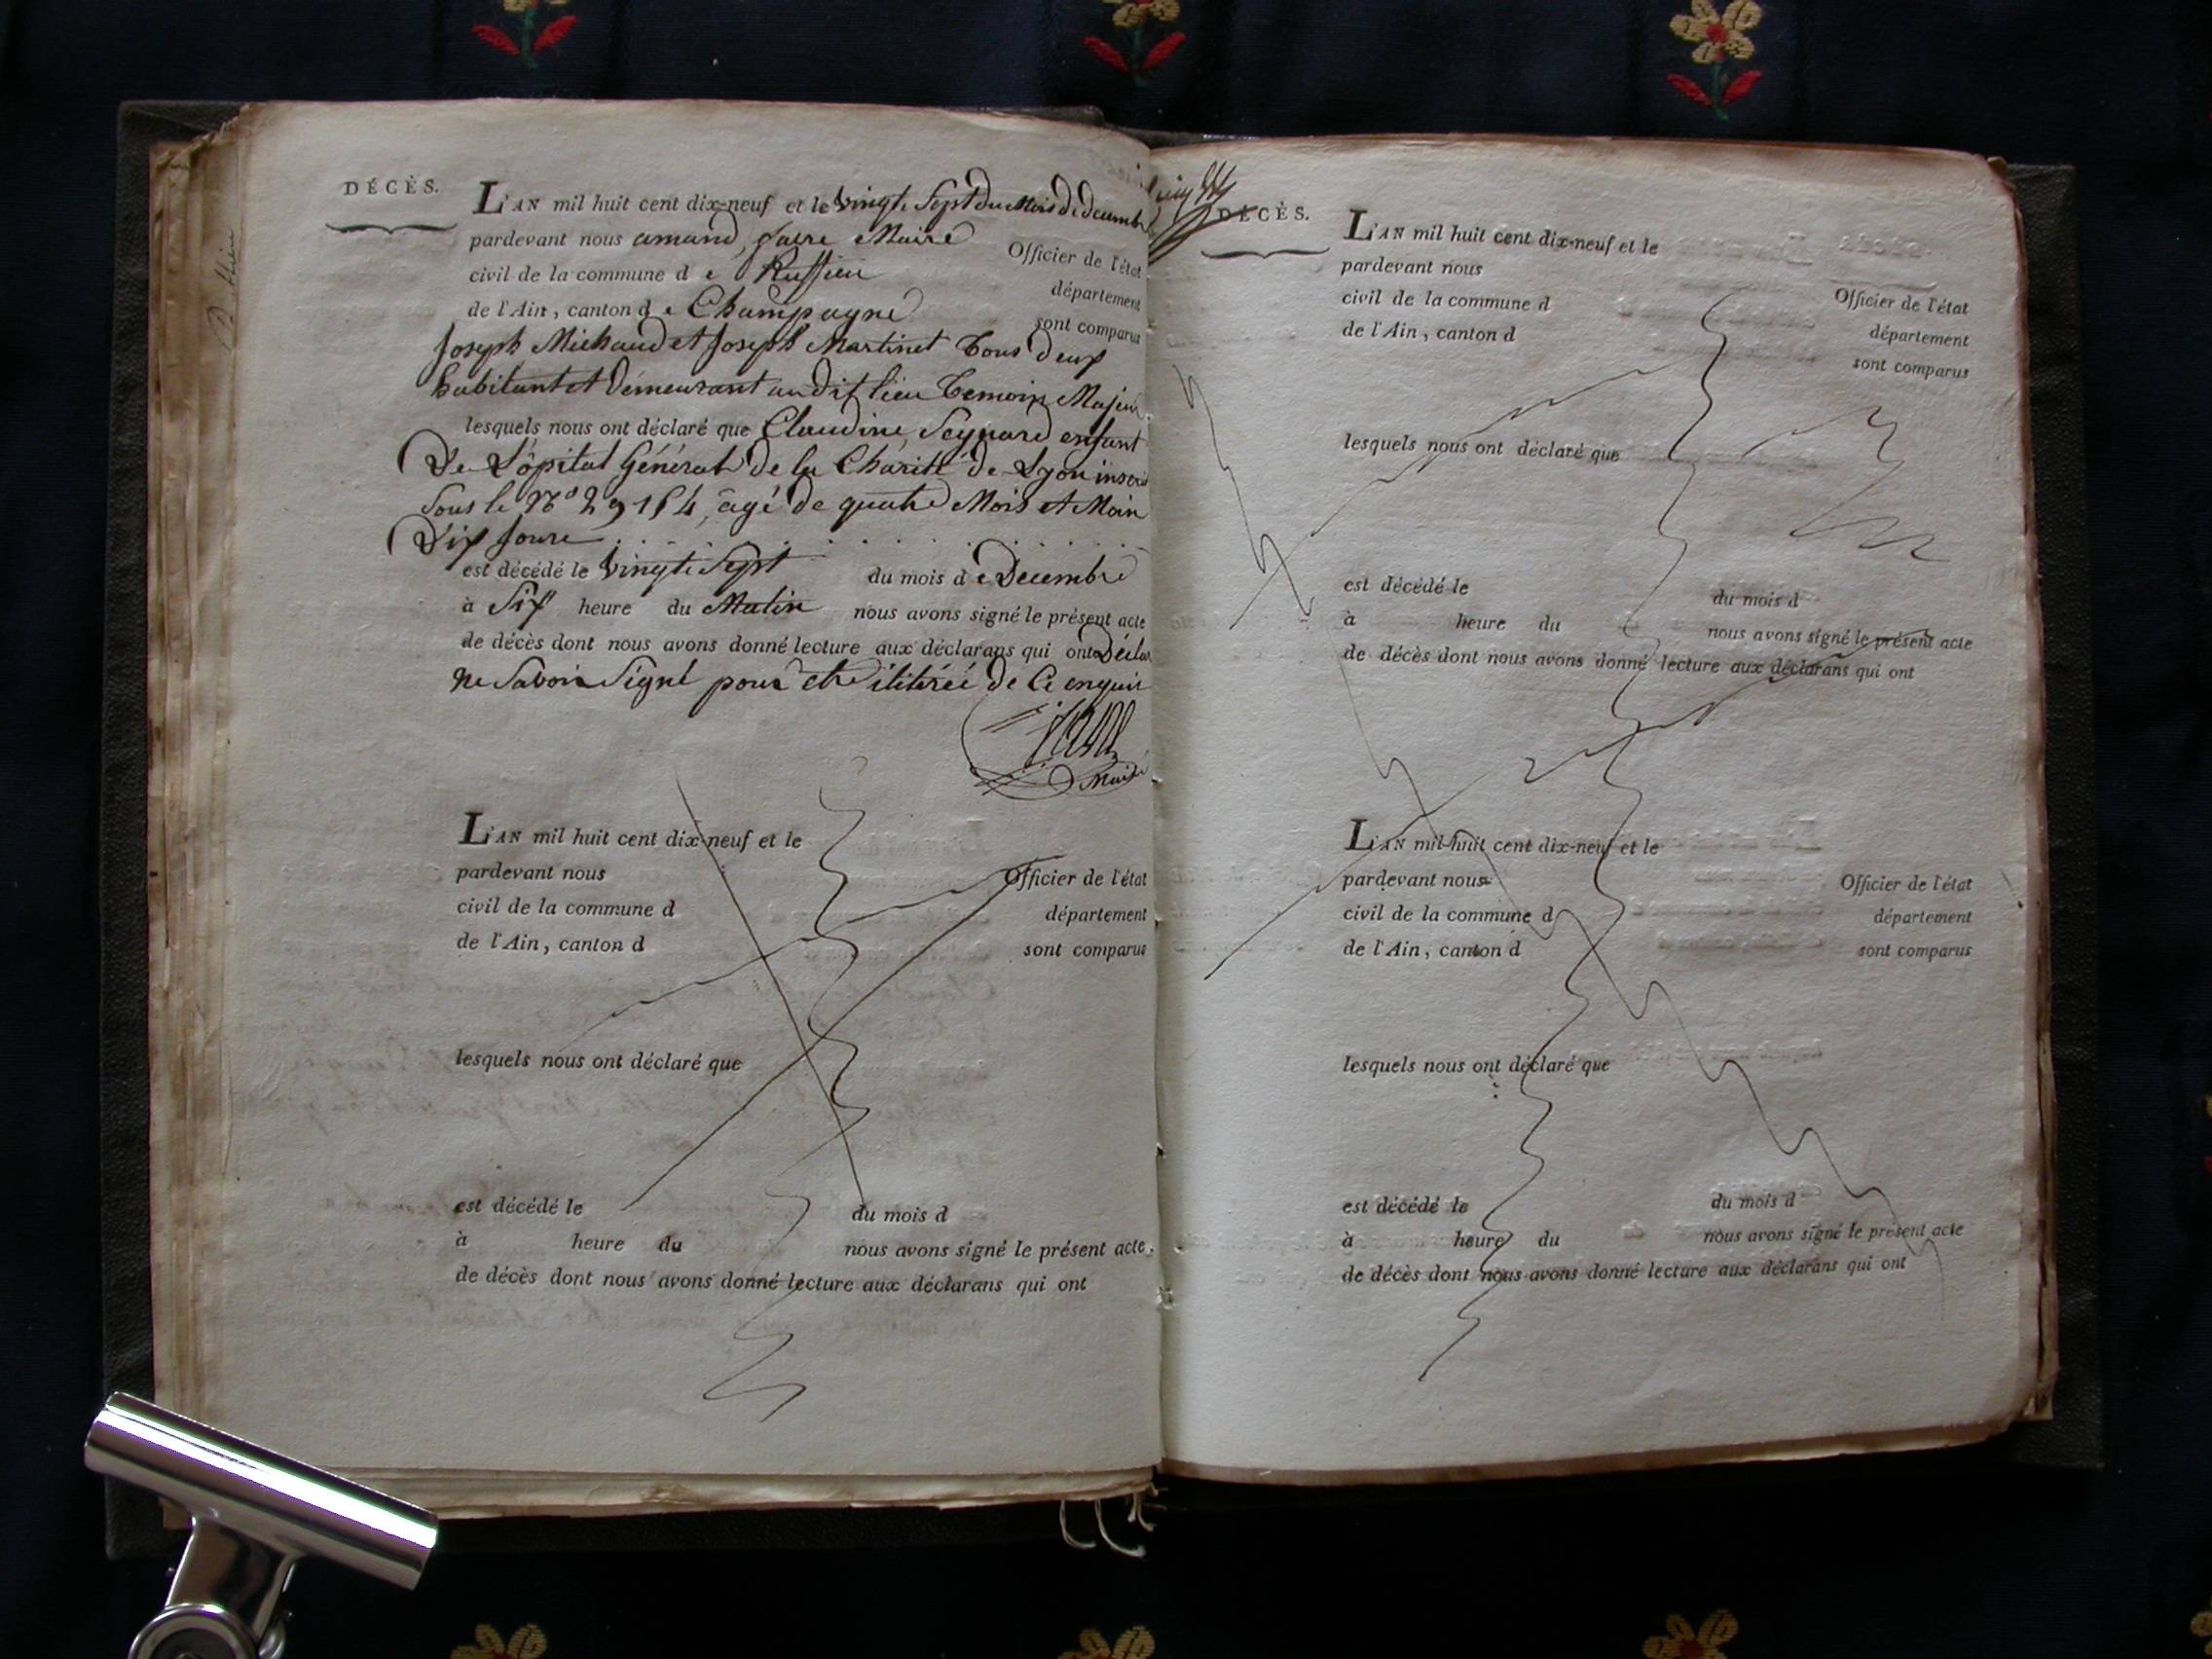 DÉCÈS.
L'AN mil huit cent dix-neuf et le vingt Sept du Mois de decembr
pardevant nous amand favre Maire Officier de l'état
civil de la commune de Ruffieu département
de l'Ain, canton de Champagne sont comparus
Joseph Michaud et Joseph Martinet tous deux
habitant et demeurant au dit lieu temoin Majeur
lesquels nous ont déclaré que Claudine Seynard enfant
de L'ôpital Général de la Charité de Lyon inscri
Sous le No 29154, âgé de quatre Mois et Moin
dix Jours
est décédé le vingt Sept du mois de Décembre
à Six heure du Matin nous avons signé le présent acte
de décès dont nous avons donné lecture aux déclarans qui ont Déclar
ne Savoir Signé pour être ilitérée de Ce enquis
Maire
L'AN mil huit cent dix-neuf et le
pardevant nous Officier de l'état
civil de la commune d département
de l'Ain, canton d sont comparus
lesquels nous ont déclaré que
est décédé le du mois d
à heure du nous avons signé le présent acte
de décès dont nous avons donné lecture aux déclarans qui ont
DÉCÈS.
L'AN mil huit cent dix-neuf et le
pardevant nous Officier de l'état
civil de la commune d département
de l'Ain, canton d sont comparus
lesquels nous ont déclaré que
est décédé le du mois d
à heure du nous avons signé le présent acte
de décès dont nous avons donné lecture aux déclarans qui ont
L'AN mil huit cent dix-neuf et le
pardevant nous Officier de l'état
civil de la commune d département
de l'Ain, canton d sont comparus
lesquels nous ont déclaré que
est décédé le du mois d
à heure du nous avons signé le présent acte
de décès dont nous avons donné lecture aux déclarans qui ont